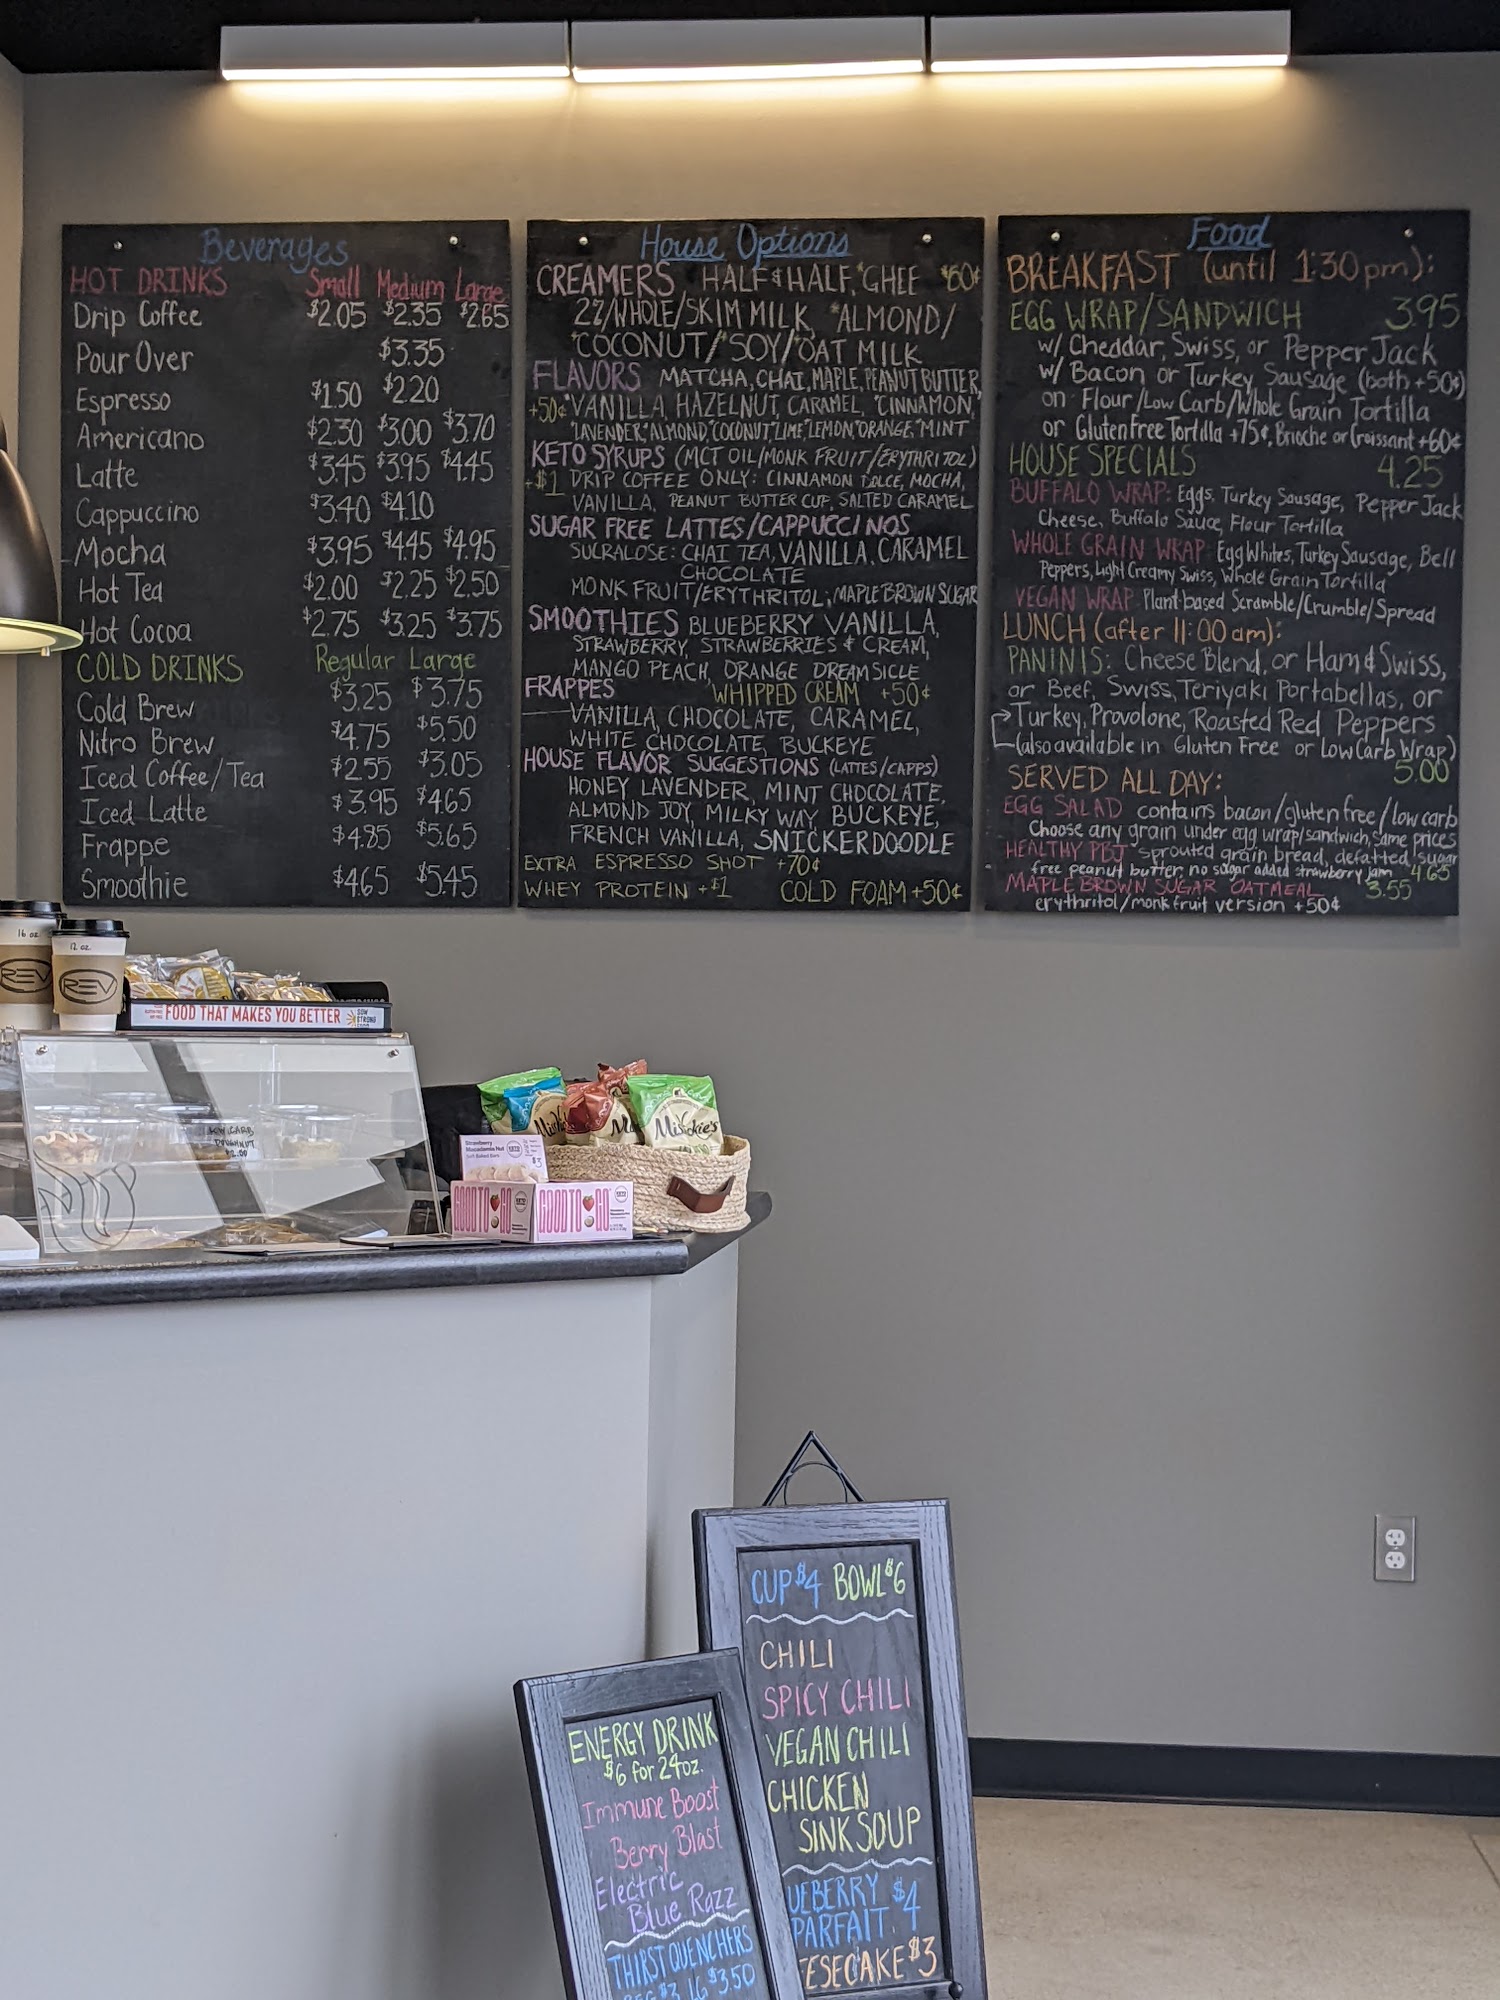 Beverages
HOT DRINKS Small Medium Large
Drip Coffee $2.05 $2.35 $2.65
Pour Over $3.35
Espresso $1.50 $2.20
Americano $2.30 $3.00 $3.70
Latte $3.45 $3.95 $4.45
Cappuccino $3.40 $4.10
Mocha $3.95 $4.45 $4.95
Hot Tea $2.00 $2.25 $2.50
Hot Cocoa $2.75 $3.25 $3.75
COLD DRINKS Regular Large
Cold Brew $3.25 $3.75
Nitro Brew $4.75 $5.50
Iced Coffee/Tea $2.55 $3.05
Iced Latte $3.95 $4.65
Frappe $4.85 $5.65
Smoothie $4.65 $5.45
House Options
CREAMERS HALF & HALF, *GHEE *60¢
2%/WHOLE/SKIM MILK, *ALMOND/
*COCONUT/*SOY/*OAT MILK
FLAVORS MATCHA, CHAI, MAPLE, PEANUT BUTTER,
+50¢ *VANILLA, HAZELNUT, CARAMEL, *CINNAMON,
*LAVENDER, *ALMOND, *COCONUT, *LIME, *LEMON, *ORANGE, *MINT
KETO SYRUPS (MCT OIL/MONK FRUIT/ERYTHRITOL)
+$1 DRIP COFFEE ONLY: CINNAMON DOLCE, MOCHA,
VANILLA, PEANUT BUTTER CUP, SALTED CARAMEL
SUGAR FREE LATTES/CAPPUCCINOS
SUCRALOSE: CHAI TEA, VANILLA, CARAMEL
CHOCOLATE
MONK FRUIT/ERYTHRITOL: MAPLE BROWN SUGAR
SMOOTHIES BLUEBERRY VANILLA,
STRAWBERRY, STRAWBERRIES & CREAM,
MANGO PEACH, ORANGE DREAMSICLE
FRAPPES WHIPPED CREAM +50¢
VANILLA, CHOCOLATE, CARAMEL,
WHITE CHOCOLATE, BUCKEYE
HOUSE FLAVOR SUGGESTIONS (LATTES/CAPPS)
HONEY LAVENDER, MINT CHOCOLATE,
ALMOND JOY, MILKY WAY, BUCKEYE,
FRENCH VANILLA, SNICKERDOODLE
EXTRA ESPRESSO SHOT +70¢
WHEY PROTEIN +$1 COLD FOAM +50¢
Food
BREAKFAST (until 1:30pm):
EGG WRAP/SANDWICH 3.95
w/ Cheddar, Swiss, or Pepper Jack
w/ Bacon or Turkey Sausage (both +50¢)
on Flour/Low Carb/Whole Grain Tortilla
or Gluten Free Tortilla +75¢, Brioche or Croissant +60¢
HOUSE SPECIALS 4.25
BUFFALO WRAP: Eggs, Turkey Sausage, Pepper Jack
Cheese, Buffalo Sauce, Flour Tortilla
WHOLE GRAIN WRAP: Egg Whites, Turkey Sausage, Bell
Peppers, Light Creamy Swiss, Whole Grain Tortilla
VEGAN WRAP: Plant-based Scramble/Crumble/Spread
LUNCH (after 11:00am):
PANINIS: Cheese Blend, or Ham & Swiss,
or Beef, Swiss, Teriyaki Portabellas, or
Turkey, Provolone, Roasted Red Peppers
(also available in Gluten Free or Low Carb Wrap)
5.00
SERVED ALL DAY:
EGG SALAD contains bacon/gluten free/low carb
Choose any grain under egg wrap/sandwich, same prices
HEALTHY PBJ sprouted grain bread, defatted, sugar
free peanut butter, no sugar added strawberry jam 4.65
MAPLE BROWN SUGAR OATMEAL 3.55
erythritol/monk fruit version +50¢
16 oz
12 oz
REV
REV
FOOD THAT MAKES YOU BETTER
SOW
STRONG
LOW CARB
DOUGHNUT
$2.00
Strawberry
Macadamia Nut
Soft Baked Bars
$3
GOOD TO GO
GOOD TO GO
KETO
CUP $4 BOWL $6
CHILI
SPICY CHILI
VEGAN CHILI
CHICKEN
SINK SOUP
UEBERRY $4
PARFAIT
ESECAKE $3
ENERGY DRINK
$6 for 24oz.
Immune Boost
Berry Blast
Electric
Blue Razz
THIRST QUENCHERS
REG $3 LG $3.50